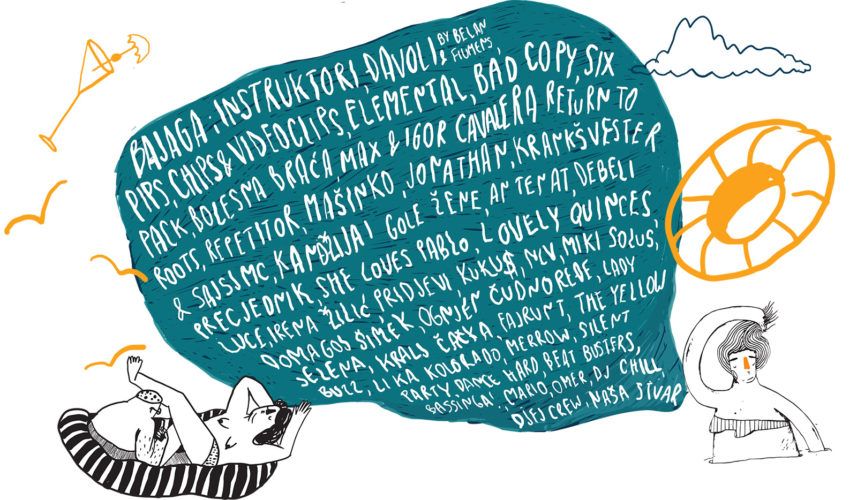 BAJAGA I INSTRUKTORI, DAVOLI, BY BELAN & FIUMENS,
PIPS, CHIPS & VIDEOCLIPS, ELEMENTAL, BAD COPY, SIX
PACK, BOLESNA BRAĆA MAX & IGOR CAVALERA RETURN TO
ROOTS, REPETITOR, MAŠINKO, JONATHAN, KRANKŠVESTER
& SAJSI MC, KANDŽIJA I GOLE ŽENE, ANTENAT, DEBELI
PRECJEDNIK, SHE LOVES PABLO, LOVELY QUINCES,
LUCE, IRENA ŽILIĆ, PRIDJEVI, KUKU$, NLV, MIKI SOLUS,
DOMAGOJ ŠIMEK, OGNJEN ČUDNOREĐE, LADY
SELENA, KRALJ ČAČKA, FAJRUNT, THE YELLOW
BUZZ, LIKA KOLORADO, MERROW, SILENT
PARTY, DANCE HARD BEAT BUSTERS,
BASSINGA!, MARIO, OMER, DJ CHILL,
DJEJ CREW, NAŠA STVAR